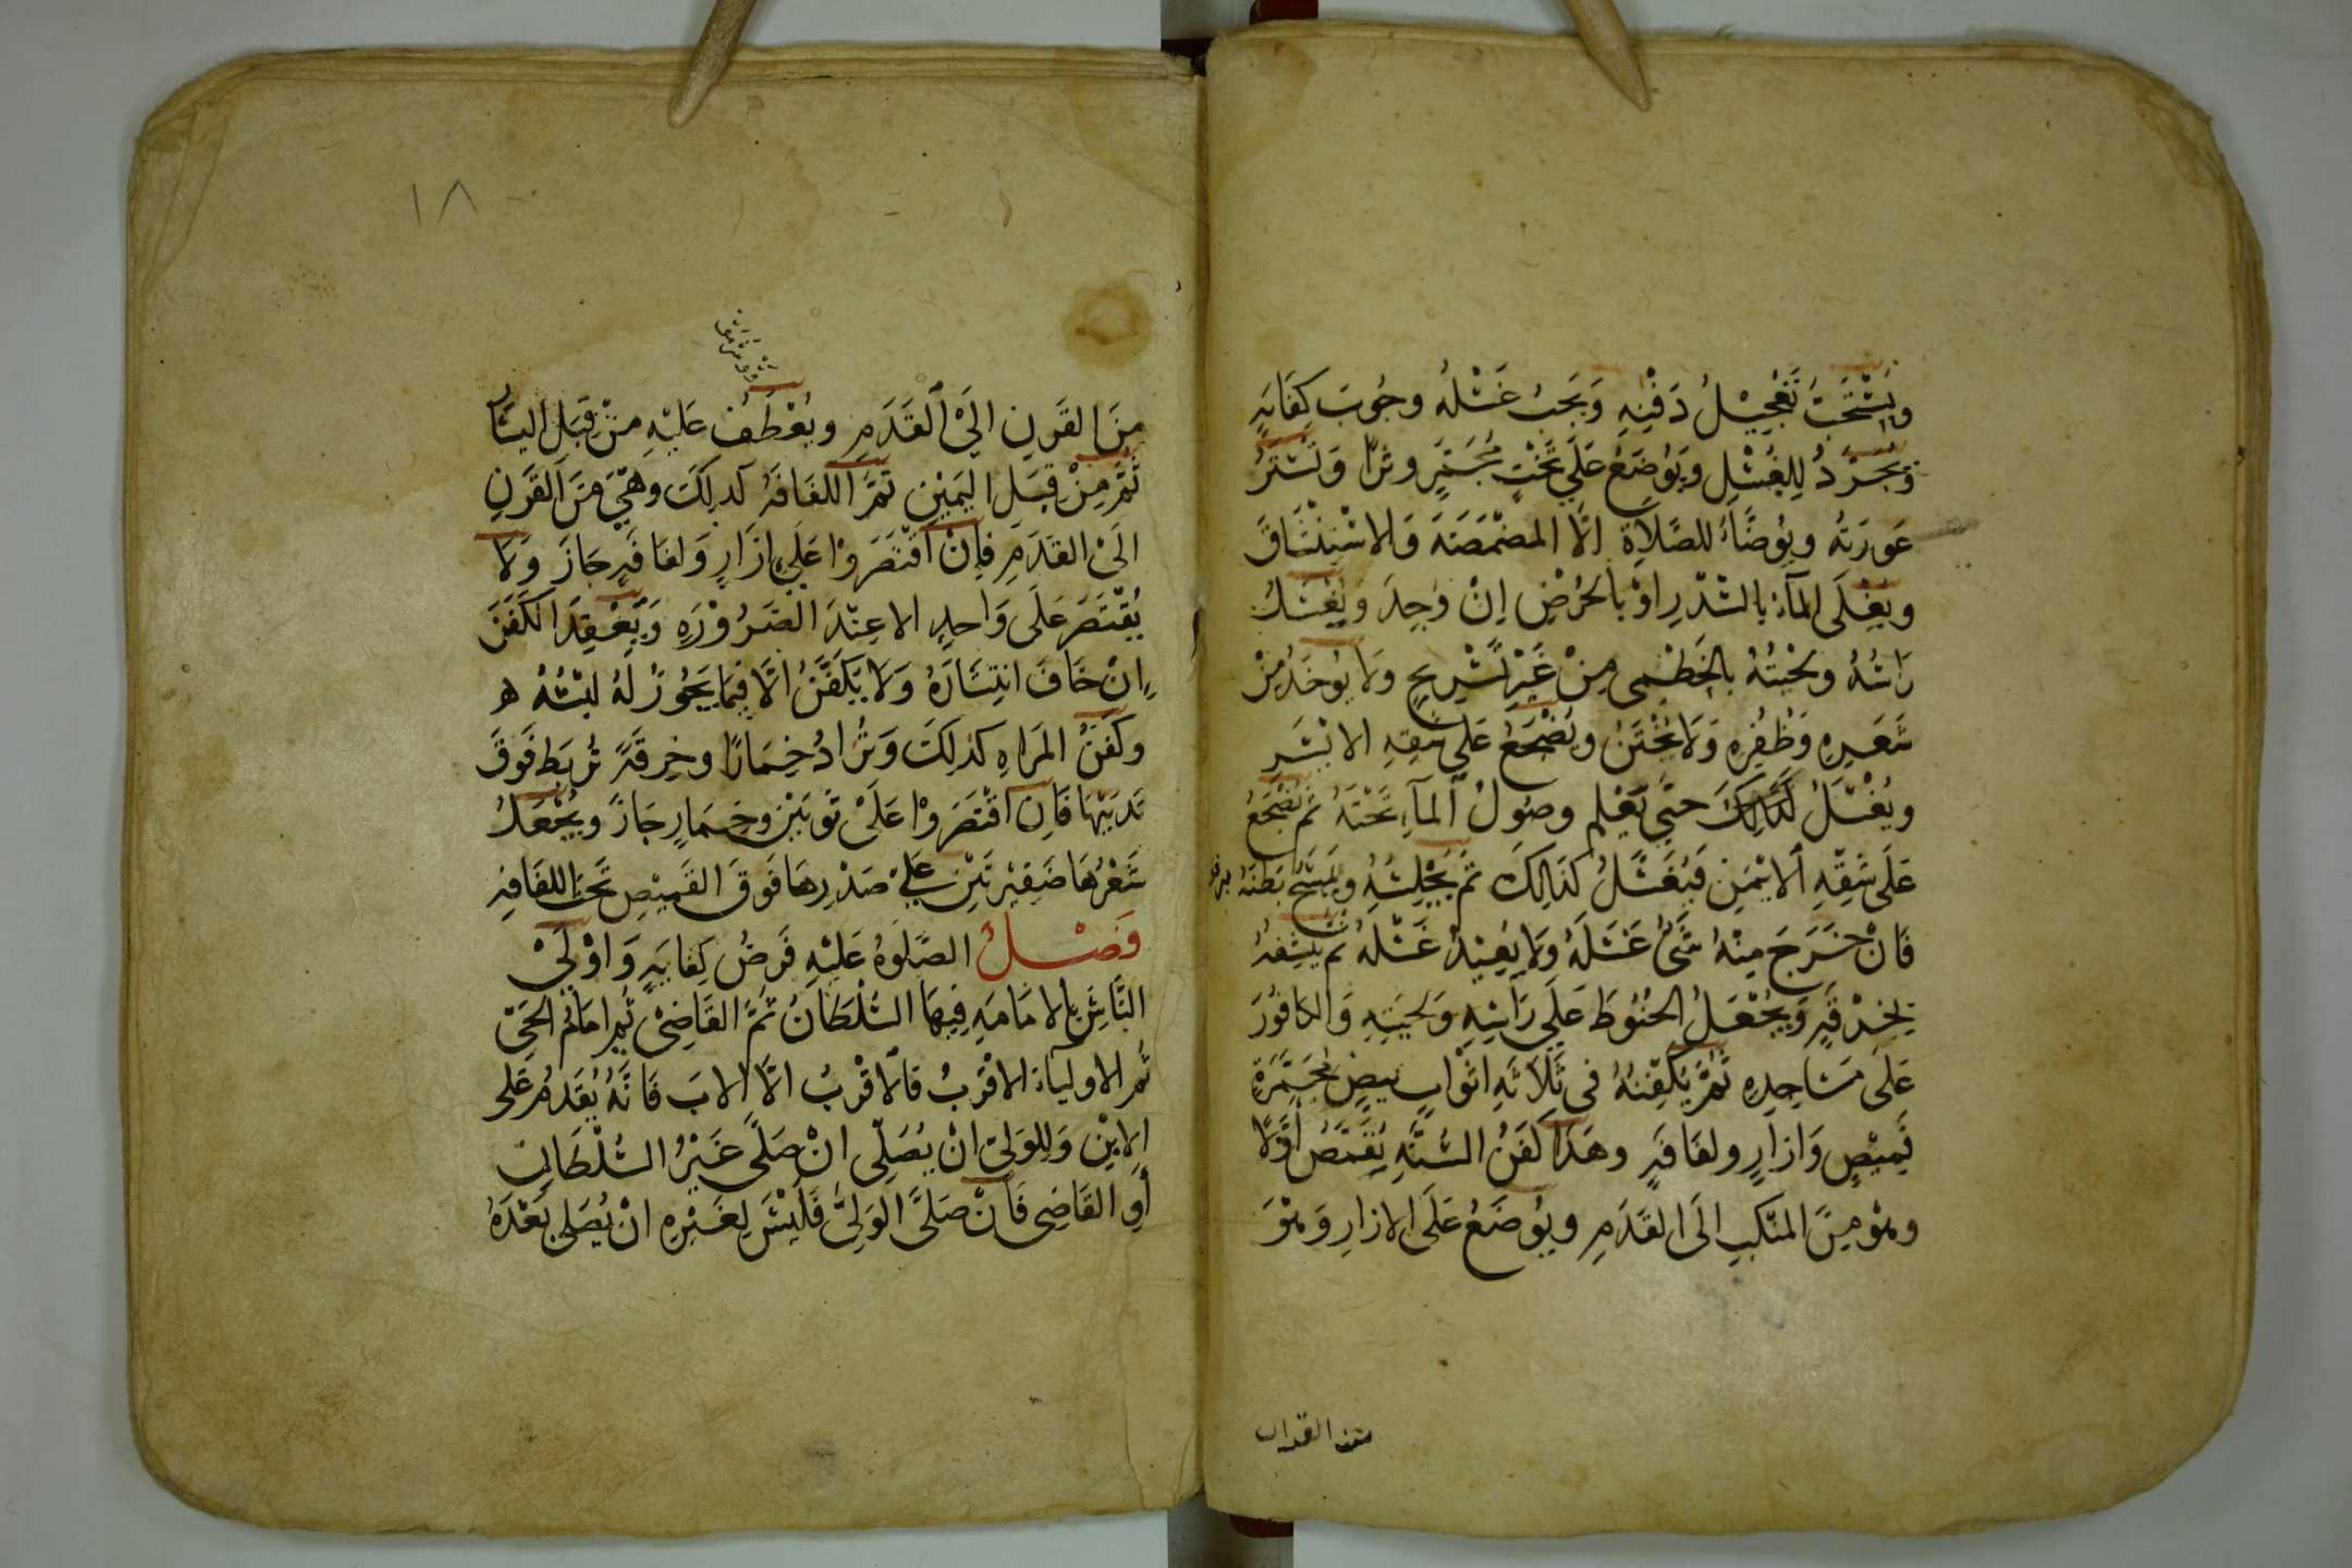 ويستحب تعجيل دفنه ويجب غسله وجوب كفايه
ويجرد للغسل ويوضع على تخت مجمر وترا وتستر
عورته ويوضأ للصلاة الا المضمضه والاستنشاق
ويغلى الماء بالسدر او بالحرض ان وجد ويغسل
راسه ولحيته بالخطمى من غير تسريح ولا يوخذ من
شعره وظفره ولا يختن ويضجع على شقه الايسر
ويغسل كذالك حتى يعلم وصول الماء تحته ثم يضجع
على شقه الايمن فيغسل كذالك ثم يجلسه ويمسح بطنه
فان خرج منه شئ غسله ولا يعيد غسله ثم ينشفه
بخرقه ويجعل الحنوط على راسه ولحيته والكافور
على مساجده ثم يكفنه فى ثلاثه اثواب بيض مجمرة
قميص وازار ولفافه وهذا كفن السنه يقمص اولا
وهو من المنكب الى القدم ويوضع على الازار وهو
من القرن
من القرن الى القدم ويعطف عليه من قبل اليسار
ثم من قبل اليمين ثم اللفافه كذلك وهي من القرن
الى القدم فان اقتصروا على ازار ولفافه جاز ولا
يقتصر على واحد الا عند الضروره ويعقد الكفن
ان خاف انتشاره ولا يكفن الا فيما يجوز له لبسه ه
وكفن المراه كذلك وتزاد خمارا وخرقة تربط فوق
ثدييها فان اقتصروا على ثوبين وخمار جاز ويجعل
شعرها ضفيرتين على صدرها فوق القميص تحت اللفافه
فصل الصلوة عليه فرض كفايه واولى
الناس بالامامه فيها السلطان ثم القاضى ثم امام الحى
ثم الاولياء الاقرب فالاقرب الا الاب فانه يقدم على
الابن وللولى ان يصلى ان صلى غير السلطان
او القاضى فان صلى الولى فليس لغيره ان يصلى بعده
١٨